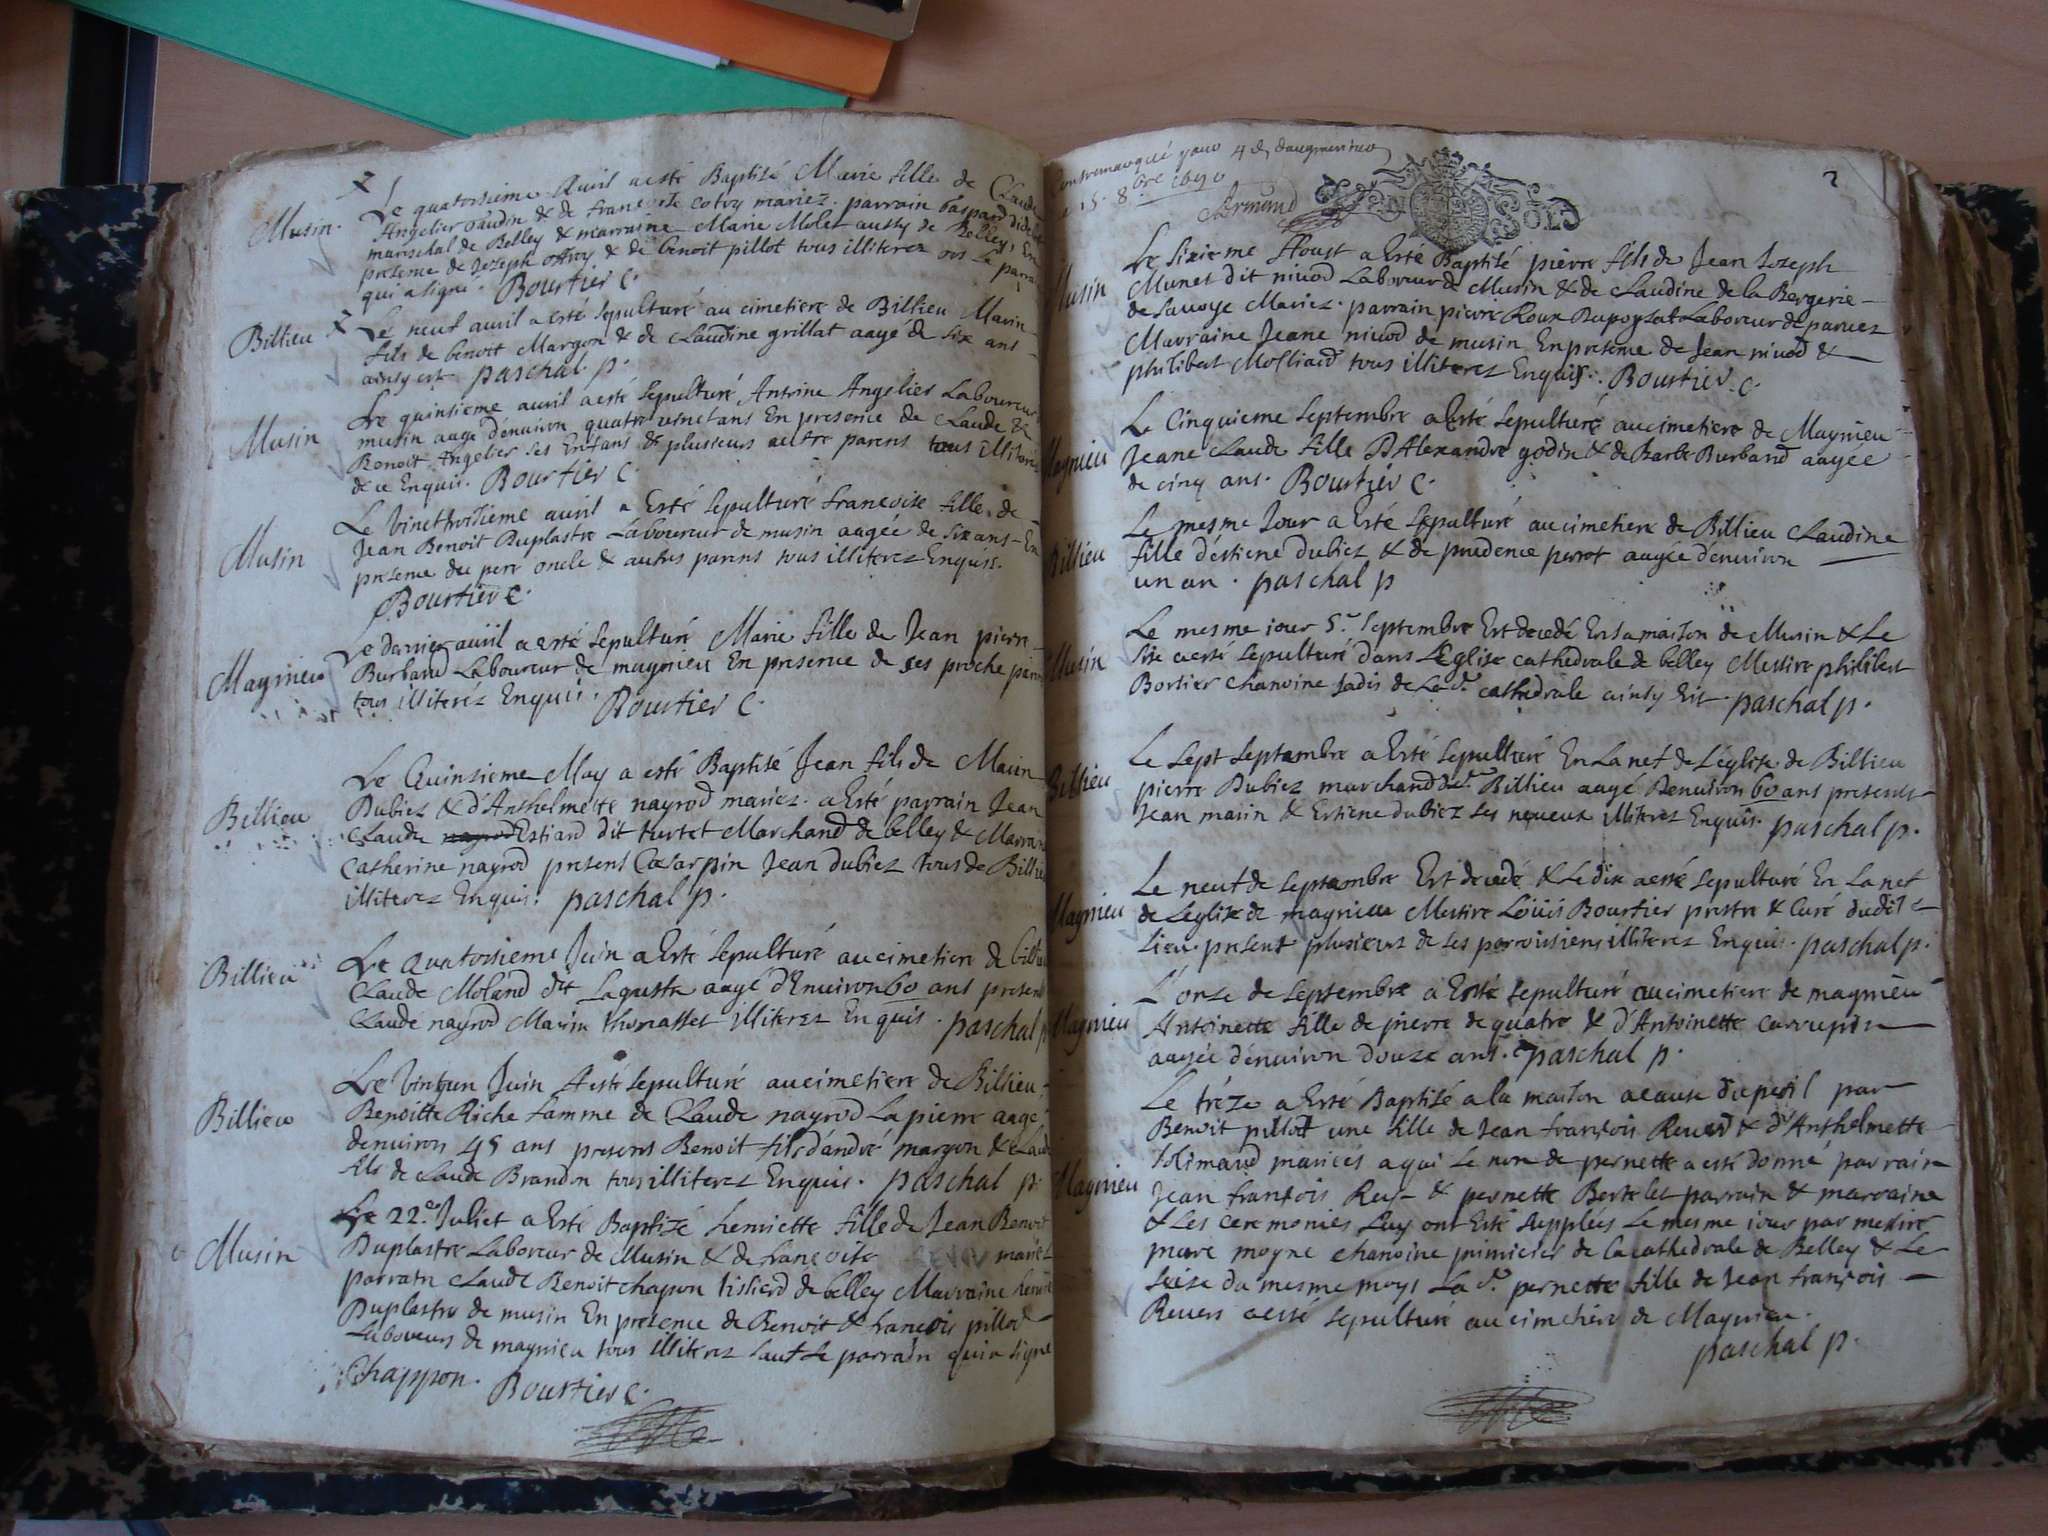 Musin.
Le quatorsieme Avril a esté Baptisé Marie fille de Claude
Angelier Baudin & de francoise mariez. parrain Gaspard
mareschal de Belley & marraine Marie Molet aussy de Belley, En
presense de Joseph & de benoit pillot tous illiterez ors le parrain
qui a signé. Bourtier C.
Billieu
Le neuf avril a esté sepulturé au cimetiere de Billieu Marin
fils de benoit Margon & de Claudine grillat aagé de six ans
ainsy est paschal p.
Musin
Le quinsieme avril a esté sepulturé Antoine Angelier Laboureur
musin aagé d'environ quatre vincts ans En presence de Claude &
Benoit Angelier ses Enfans & plusieurs autre parens tous illiterez
de ce Enquis. Bourtier C
Musin
Le vinctroisieme avril a Esté sepulturé francoise fille de
Jean Benoit Duplastre Laboureur de musin aagée de six ans - En
presense du pere oncle & autres parens tous illiterez Enquis.
Bourtier C.
Magnieu
Le dernier avril a esté sepulturé Marie fille de Jean pierre
Burband Laboureur de magnieu En presence de ses proche parens
tous illiterez Enquis. Bourtier C.
Billieu
Le Quinsieme May a esté Baptisé Jean fils de Marin
Dubiez & d'Anthelmette nayrod mariez. a Esté parrain Jean
Claude nayrod Estiard dit turtet Marchand de belley & Marraine
Catherine nayrod presens Cæsar pin Jean dubiez tous de Billieu
illiterez Enquis. paschal p.
Billieu
Le quatorsieme Juin a Esté sepulturé au cimetiere de billieu
Claude Moland dit Laguste aagé d'Environ 60 ans presens
Claude nayrod Marin thomasset illiterez Enquis. paschal p
Billieu
Le Vintun Juin A esté sepulturé au cimetiere de Billieu -
Benoitte Riche famme de Claude nayrod La pierre aagé
denviron 45 ans presens Benoit fils d'andré margon & Claude
fils de Claude Brandon tous illiterez Enquis. paschal p.
Musin
Le 22.e Juliet a Esté Baptizé henriette fille de Jean Benoit
Duplastre Laboreur de Musin & de francoise mariez
parrain Claude Benoit chapon tissierd de belley Marraine henriette
Duplastre de musin En presence de Benoit & francois pillod
Laboreurs de magnieu tous illiterez sauf le parrain qui a signé
Chappon. Bourtier C.
Contremarqué pour 4 d. daugmentation
15. 8.bre 1690
Armand
2
SOLS
Musin
Le sixieme Aoust a Esté Baptisé pierre fils de Jean Joseph
Munet dit nivod Laboreur de Musin & de Claudine de la Bergerie -
de Savoye Mariez. parrain pierre Roux Dupoysat Laboreur de parves
Marraine Jeane nivod de musin En presense de Jean nivod &
philibert Molliard tous illiterez Enquis. Bourtier. C.
Magnieu
Le Cinquieme septembre a Esté sepulturé au cimetiere de Magnieu
Jeane Claude fille D'Alexandre godin & de Barbe Burband aagée
de cinq ans. Bourtier C.
Billieu
Le mesme Jour a Esté sepulturé au cimetiere de Billieu Claudine
fille d'éstiene dubiez & de prudence perrot aagée d'environ
un an. paschal p
Musin
Le mesme iour 5.e septembre Est decedé En sa maison de Musin & Le
six a esté sepulturé dans L'Eglise cathedrale de belley Messire philibert
Bortier chanoine Jadis de La d.e cathedrale ainsy Est. paschal p.
Billieu
Le sept septembre a Esté sepulturé En La nef de L'église de Billieu
pierre Dubiez marchand de Billieu aagé Denuiron 60 ans presents -
Jean marin & Estiene dubiez ses neveux illiterez Enquis. paschal p.
Magnieu
Le neuf de septembre Est decedé & Le dix a esté sepulturé En La nef
de L'eglise de magnieu Messire Loüis Bourtier prestre & Curé dudit
Lieu. present plusieurs de ses parroissiens illiterez Enquis. paschal p.
Magnieu
L'onze de septembre a Esté sepulturé au cimetiere de magnieu
Antoinette fille de pierre de quatre & d'Antoinette
aagée d'environ douze ans. paschal p.
Magnieu
Le tréze a Esté Baptisé a la maison a cause du peril par
Benoit pillod une fille de Jean françois Revers & d'Anthelmette
Holimard mariés a qui le nom de pernette a esté donné parrain
Jean françois & pernette Bertelet parrain & marraine
& Les ceremonies Luy ont Esté supplées Le mesme iour par messire
moyne chanoine primicier de la cathedrale de Belley & Le
seize du mesme moys La d.e pernette fille de Jean françois -
Revers a esté sepulturé au cimetiere de Magnieu.
paschal p.